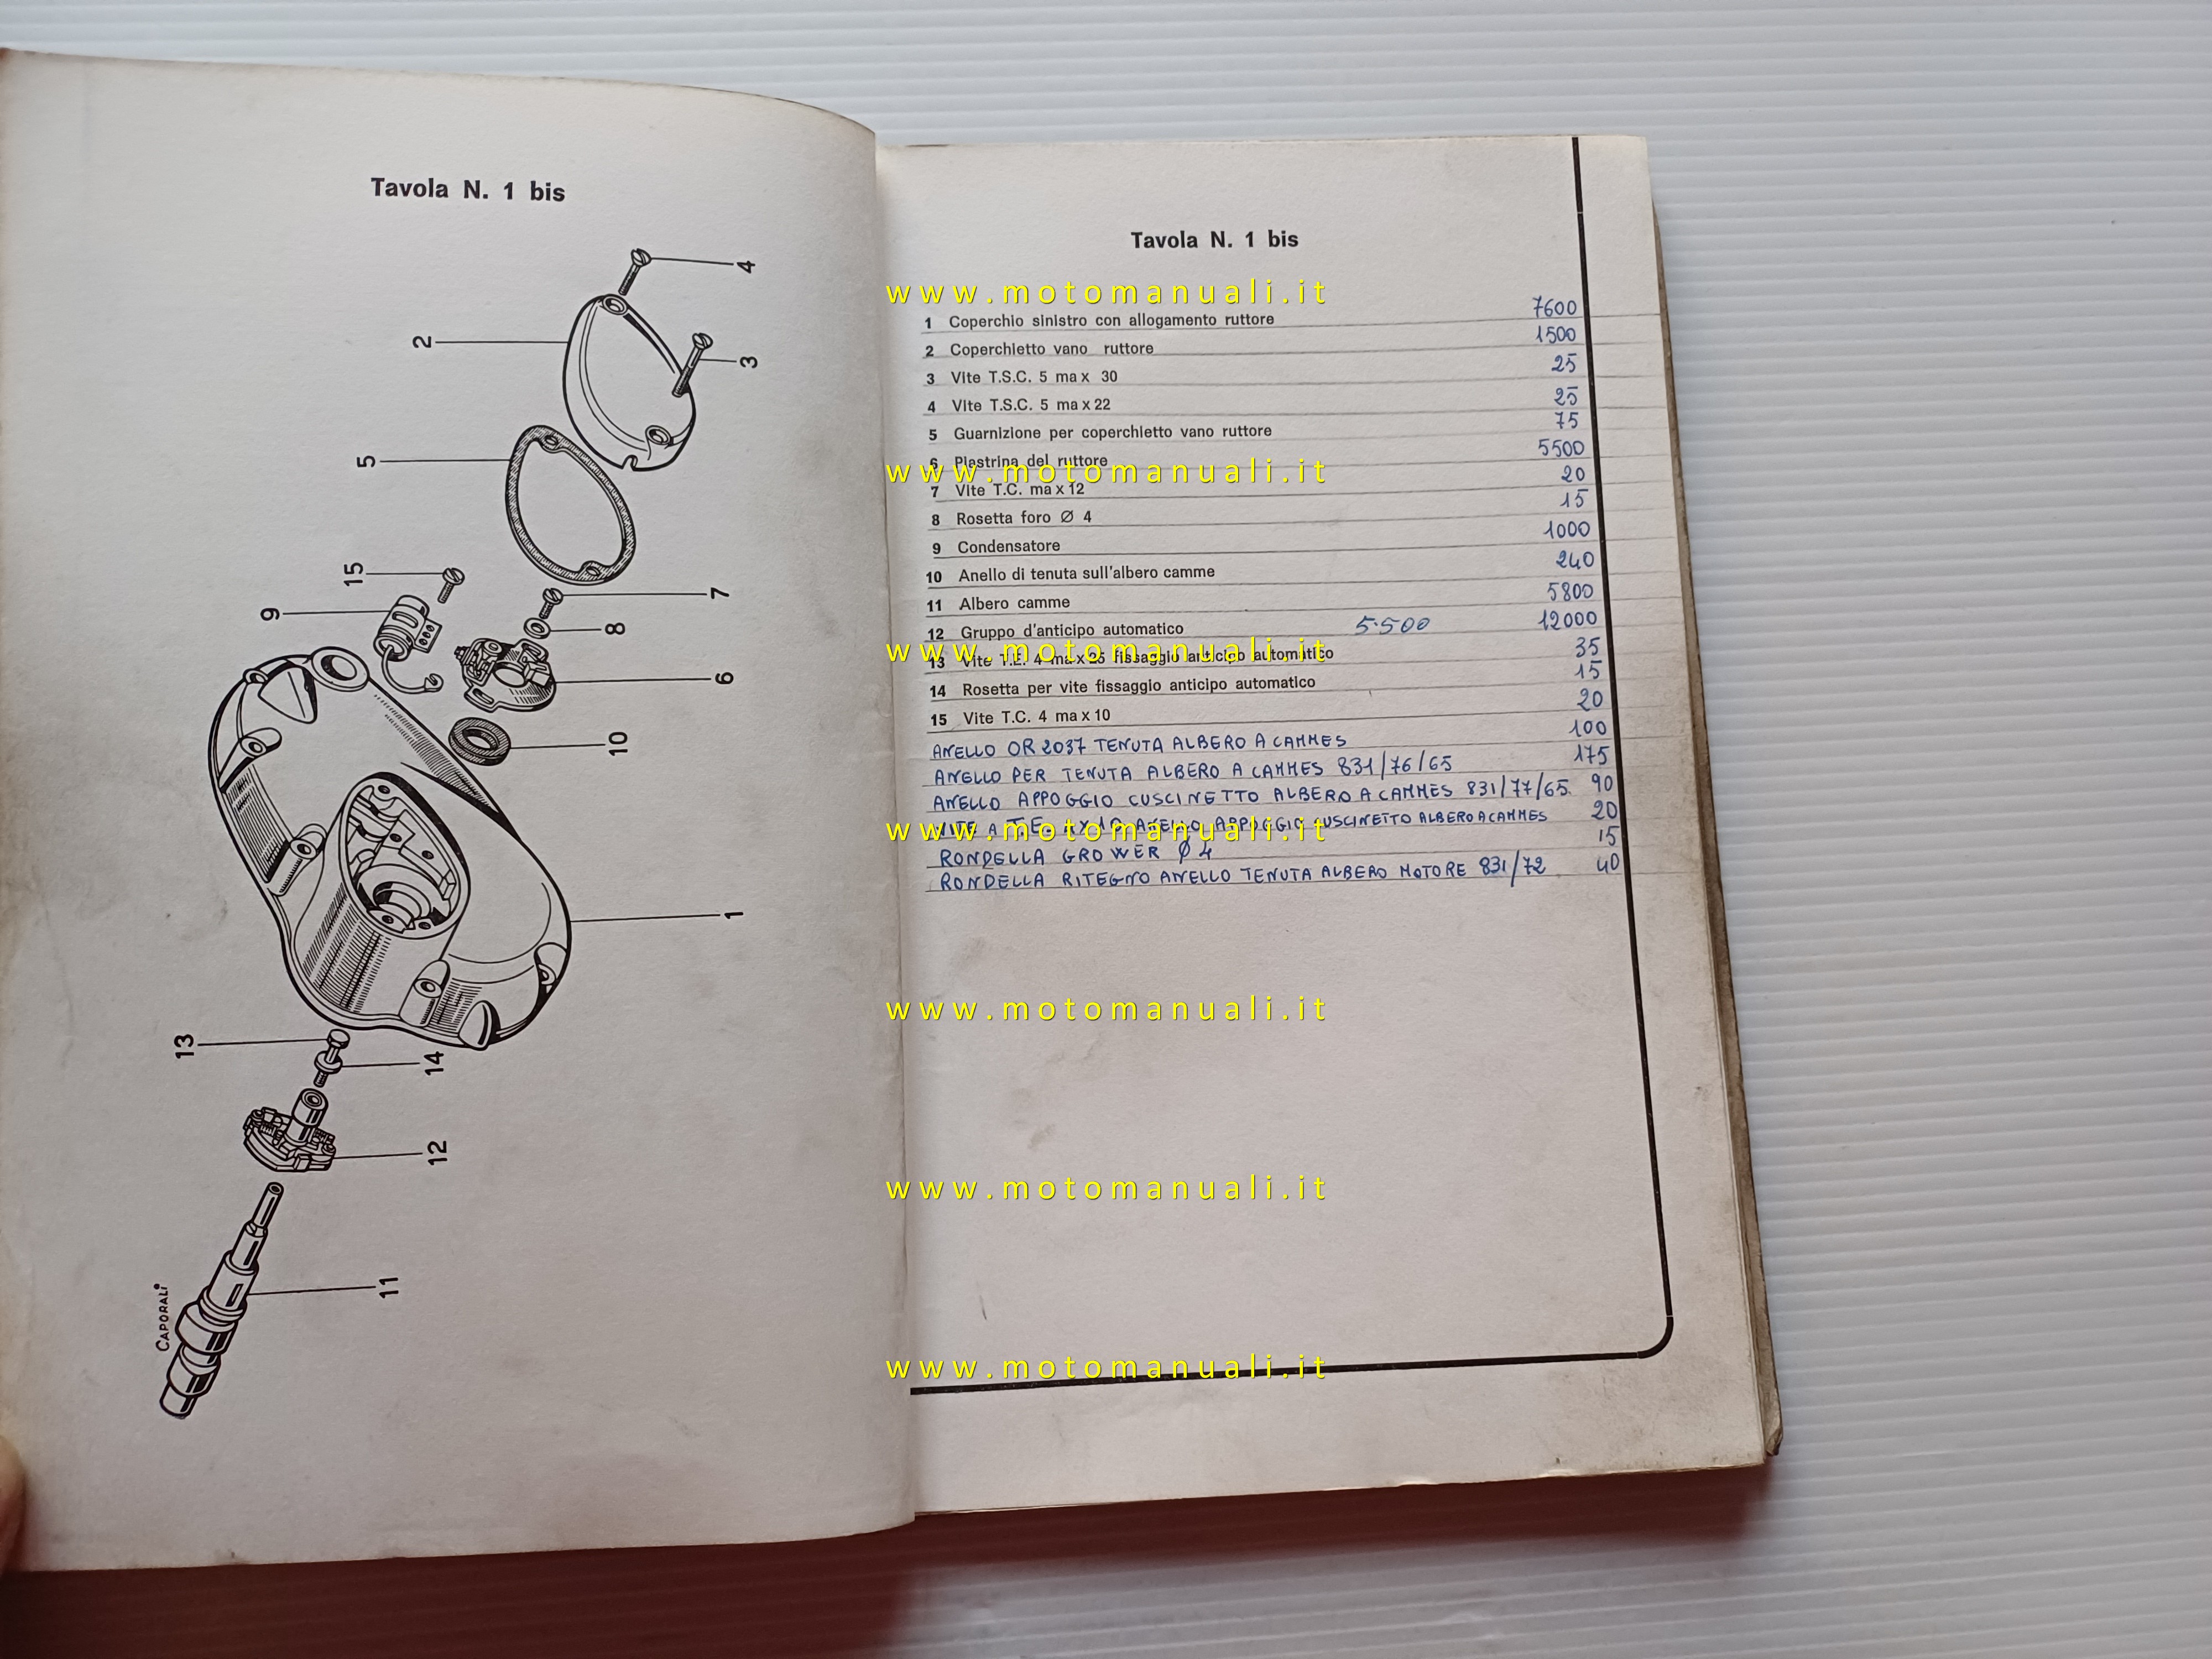 Tavola N. 1 bis
4
2
3
5
15
9
7
8
6
10
1
13
14
12
11
CAPORALI
Tavola N. 1 bis
www.motomanuali.it
1 Coperchio sinistro con allogamento ruttore 7600
2 Coperchietto vano ruttore 1500
3 Vite T.S.C. 5 ma x 30 25
4 Vite T.S.C. 5 ma x 22 25
5 Guarnizione per coperchietto vano ruttore 75
6 Piastrina del ruttore 5500
www.motomanuali.it
7 Vite T.C. ma x 12 20
8 Rosetta foro Ø 4 15
9 Condensatore 1000
10 Anello di tenuta sull'albero camme 240
11 Albero camme 5800
12 Gruppo d'anticipo automatico 5.500 12000
www.motomanuali.it
13 Vite T.E. 4 ma x 25 fissaggio anticipo automatico 35
14 Rosetta per vite fissaggio anticipo automatico 15
15 Vite T.C. 4 ma x 10 20
ANELLO OR 2037 TENUTA ALBERO A CAMMES 100
ANELLO PER TENUTA ALBERO A CAMMES 831/76/65 175
ANELLO APPOGGIO CUSCINETTO ALBERO A CAMMES 831/77/65 90
www.motomanuali.it
VITE A T.E. ANELLO APPOGGIO CUSCINETTO ALBERO A CAMMES 20
RONDELLA GROWER Ø 4 15
RONDELLA RITEGNO ANELLO TENUTA ALBERO MOTORE 831/72 40
www.motomanuali.it
www.motomanuali.it
www.motomanuali.it